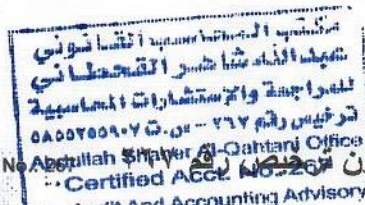 مكتب المحاسب القانوني
عبدالله شاهر القحطاني
للمراجعة والاستشارات المحاسبية
ترخيص رقم ٢٦٧ - س.ت ٥٨٥٥٢٥٥٩٠٧
Abdullah Shaher Al-Qahtani Office
ترخيص رقم
Certified Acct. No. 267
And Accounting Advisory